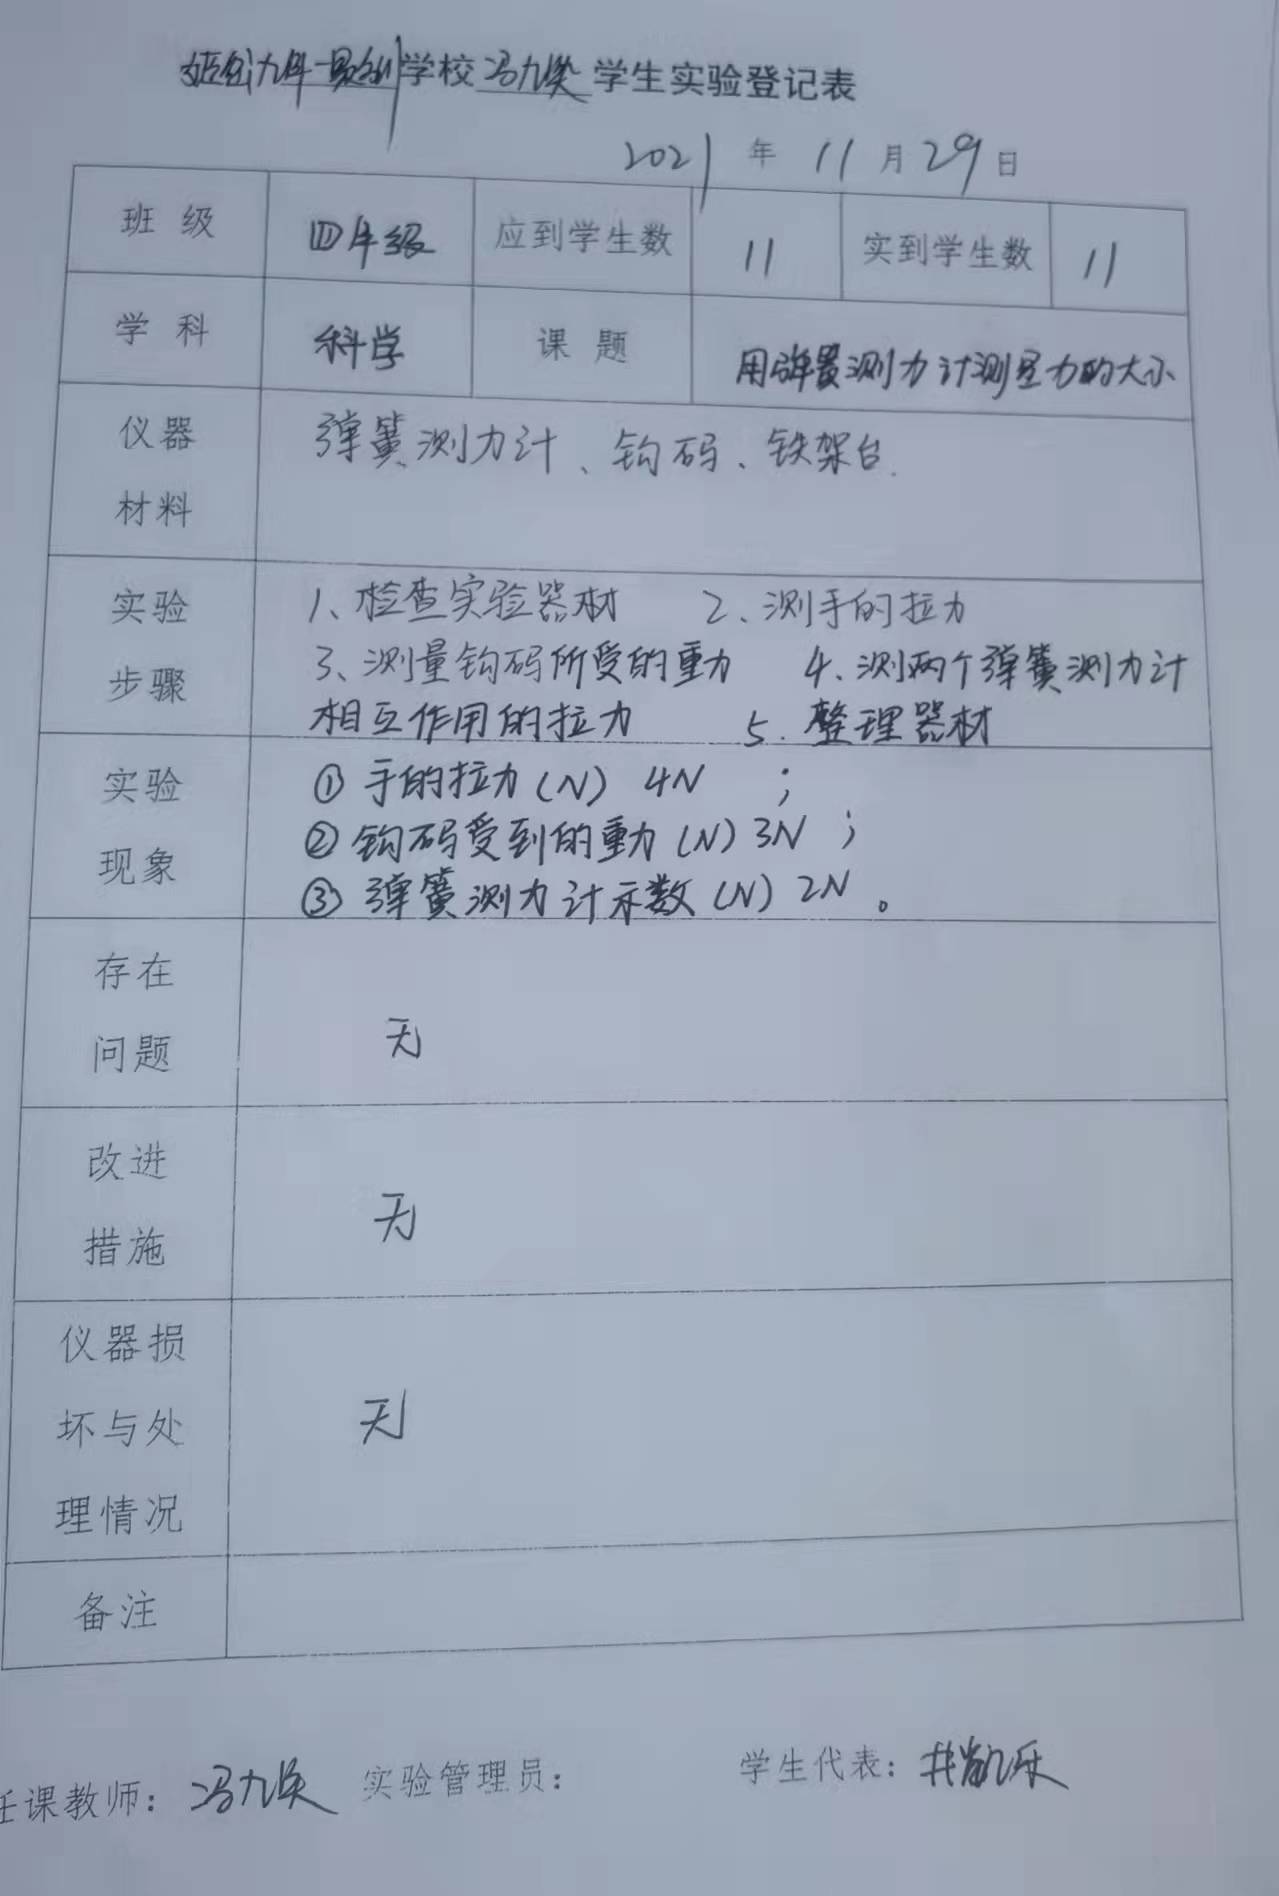 九年一贯制学校冯九焕学生实验登记表
2021年11月29日
班级 四年级 应到学生数 11 实到学生数 11
学科 科学 课题 用弹簧测力计测量力的大小
仪器 弹簧测力计、钩码、铁架台.
材料
实验 1、检查实验器材 2、测手的拉力
步骤 3、测量钩码所受的重力 4、测两个弹簧测力计
相互作用的拉力 5.整理器材
实验 ①手的拉力(N) 4N ;
现象 ②钩码受到的重力(N) 3N ;
③弹簧测力计示数(N) 2N 。
存在
问题 无
改进
措施 无
仪器损
坏与处 无
理情况
备注
任课教师: 冯九焕 实验管理员: 学生代表: